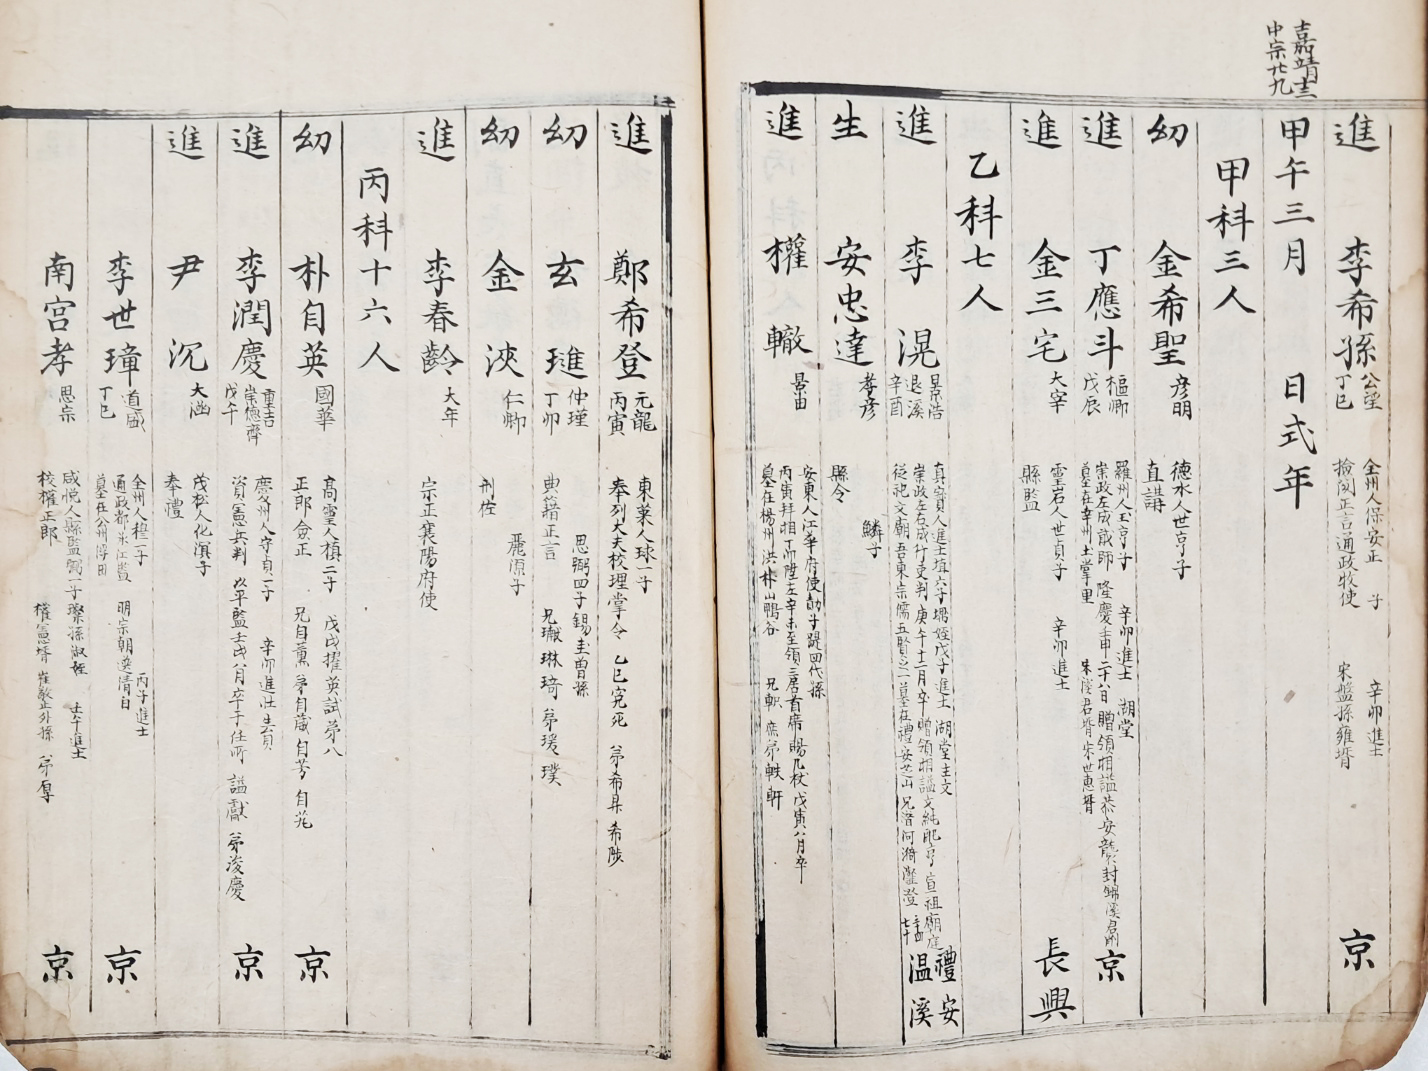 進 李希孫 公望 丁巳 全州人保安正 子 辛卯進士 檢閱正言通政牧使 宋盤孫雍壻 京
嘉靖十三
中宗廿九
甲午三月 日式年
甲科三人
幼 金希聖 彦明 德水人世亨子 直講
進 丁應斗 樞卿 戊辰 羅州人玉亨子 辛卯進士 湖堂 崇政左贊成 隆慶壬申二十八日 贈領相謚恭安 京
進 金三宅 大宰 靈岩人世貞子 辛卯進士 縣監 長興
乙科七人
進 李滉 景浩 退溪 辛酉 真寶人進士埴六子堣姪戊子進士 湖堂主文 崇政左右成行吏判 庚午十二月卒 贈領相謚文純配享宣祖廟庭 從祀文廟吾東宗儒五賢之一墓在禮安芝山 兄潛河漪瀣澄 禮安 溫溪
生 安忠達 孝彦 鱗子 縣令
進 權轍 景由 安東人江華府使勣子踶四代孫 丙寅拜相丁卯陞左辛未至領三居首席賜几杖戊寅八月卒 墓在楊州洪林山鴨谷 兄軹 弟軼軒
進 鄭希登 元龍 丙寅 東萊人球一子 奉列大夫校理掌令 乙巳冤死 弟希具 希陟
幼 玄璡 仲瑾 丁卯 思弼四子錫圭曾孫 典籍正言 兄璥琳琦 弟瑗璞
幼 金浹 仁卿 麗源子 刑佐
進 李春齡 大年 宗正襄陽府使
丙科十六人
幼 朴自英 國華 高靈人楨二子 戊戌擢英試第八 正郎僉正 兄自薰 弟自葳自芳自苑 京
進 李潤慶 重吉 崇德齋 戊午 廣州人守貞一子 辛卯進壯生員 資憲兵判 以平監壬戌八月卒于任所 謚獻 弟浚慶 京
進 尹沉 大涵 茂松人化溟子 奉禮
李世璋 道盛 丁巳 全州人穆二子 丙子進士 通政都承江監 明宗朝選清白 墓在公州浮田 京
南宮孝 思宗 咸悅人縣監弼一子璨孫淑姪 壬午進士 校檢正郎 權憲壻 崔敬止外孫 弟厚 京